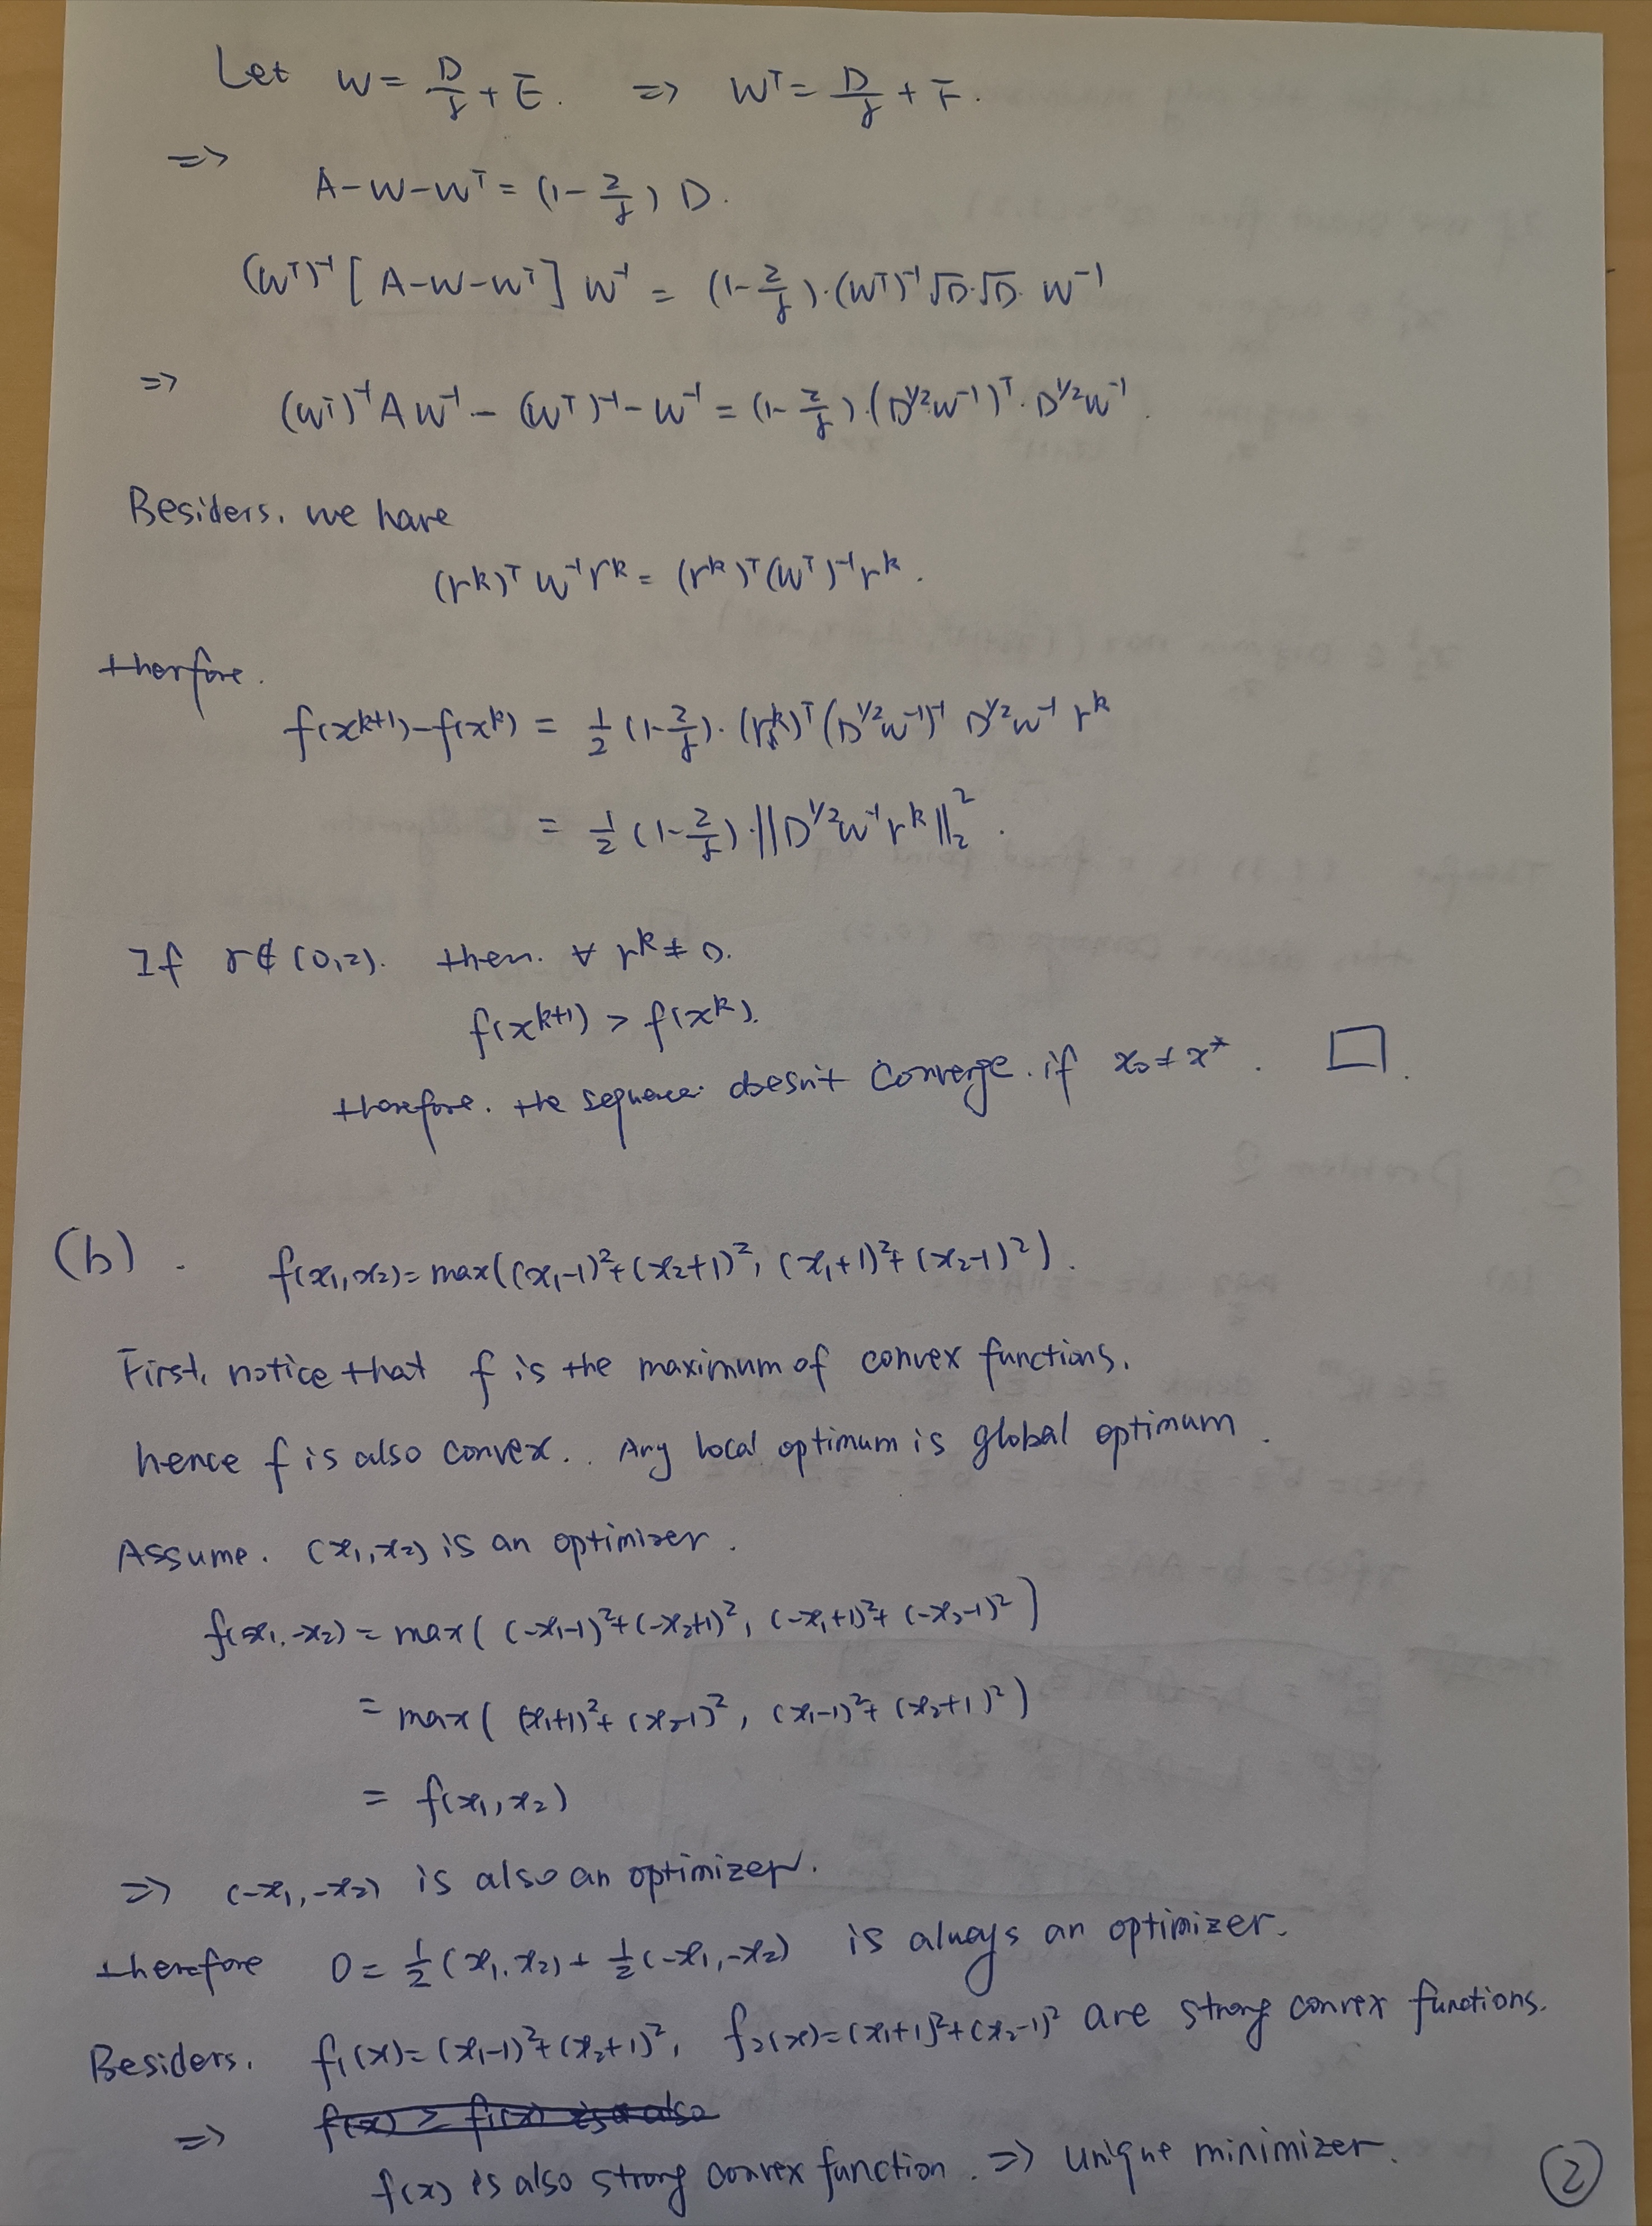 Let W = D/γ + E. => Wᵀ = D/γ + F.
=>
A-W-Wᵀ = (1-2/γ) D.
(Wᵀ)⁻¹ [ A-W-Wᵀ ] W⁻¹ = (1-2/γ)·(Wᵀ)⁻¹ √D·√D· W⁻¹
=> (Wᵀ)⁻¹ A W⁻¹ - (Wᵀ)⁻¹ - W⁻¹ = (1-2/γ)·(D^{1/2}W⁻¹)ᵀ· D^{1/2}W⁻¹.
Besiders, we have
(rᵏ)ᵀ W⁻¹rᵏ = (rᵏ)ᵀ(Wᵀ)⁻¹rᵏ.
therfore.
f(xᵏ⁺¹)-f(xᵏ) = ½ (1-2/γ)· (rᵏ)ᵀ (D^{1/2}W⁻¹)ᵀ D^{1/2}W⁻¹ rᵏ
= ½ (1-2/γ)·||D^{1/2}W⁻¹rᵏ||₂².
If γ∉(0,2). then. ∀ rᵏ≠0.
f(xᵏ⁺¹) > f(xᵏ).
therefore. the sequence doesn't converge. if x₀≠x*. □.
(b). f(x₁,x₂)=max((x₁-1)²+(x₂+1)², (x₁+1)²+(x₂-1)²).
First, notice that f is the maximum of convex functions.
hence f is also convex.. Any local optimum is global optimum.
Assume. (x₁,x₂) is an optimizer.
f(-x₁,-x₂) = max( (-x₁-1)²+(-x₂+1)², (-x₁+1)²+(-x₂-1)²)
= max( (x₁+1)²+(x₂-1)², (x₁-1)²+(x₂+1)²)
= f(x₁,x₂)
=> (-x₁,-x₂) is also an optimizer.
therefore 0 = ½(x₁,x₂)+½(-x₁,-x₂) is always an optimizer.
Besiders. f₁(x)=(x₁-1)²+(x₂+1)², f₂(x)=(x₁+1)²+(x₂-1)² are strong convex functions.
=>
f(x) is also strong convex function. => unique minimizer.
②